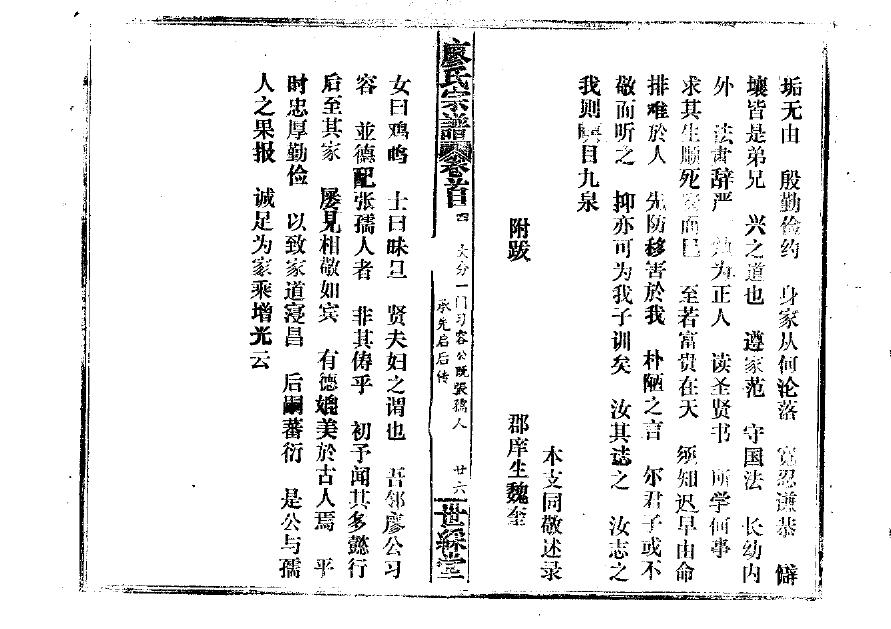 垢无由 殷勤俭约 身家从何沦落 宽忍谦恭 僻
壤皆是弟兄 兴之道也 遵家范 守国法 长幼内
外 法肃辞严 为正人 读圣贤书 所学何事
求其生顺死 而已 至若富贵在天 须知迟早由命
排难於人 先防移害於我 朴陋之言 尔君子或不
敬而听之 抑亦可为我子训矣 汝其誌之 汝志之
我则瞑目九泉
本支同敬述录
附跋
郡庠生魏奎
廖氏宗譜 卷首 四 文分一门习容公既張孺人 承先启后传 廿六 世綵堂
女曰鸡鸣 士曰昧旦 贤夫妇之谓也 吾邻廖公习
容 並德配张孺人者 非其俦乎 初予闻其多懿行
后至其家 屡见相敬如宾 有德媲美於古人焉 平
时忠厚勤俭 以致家道寖昌 后嗣蕃衍 是公与孺
人之果报 诚足为家乘增光云